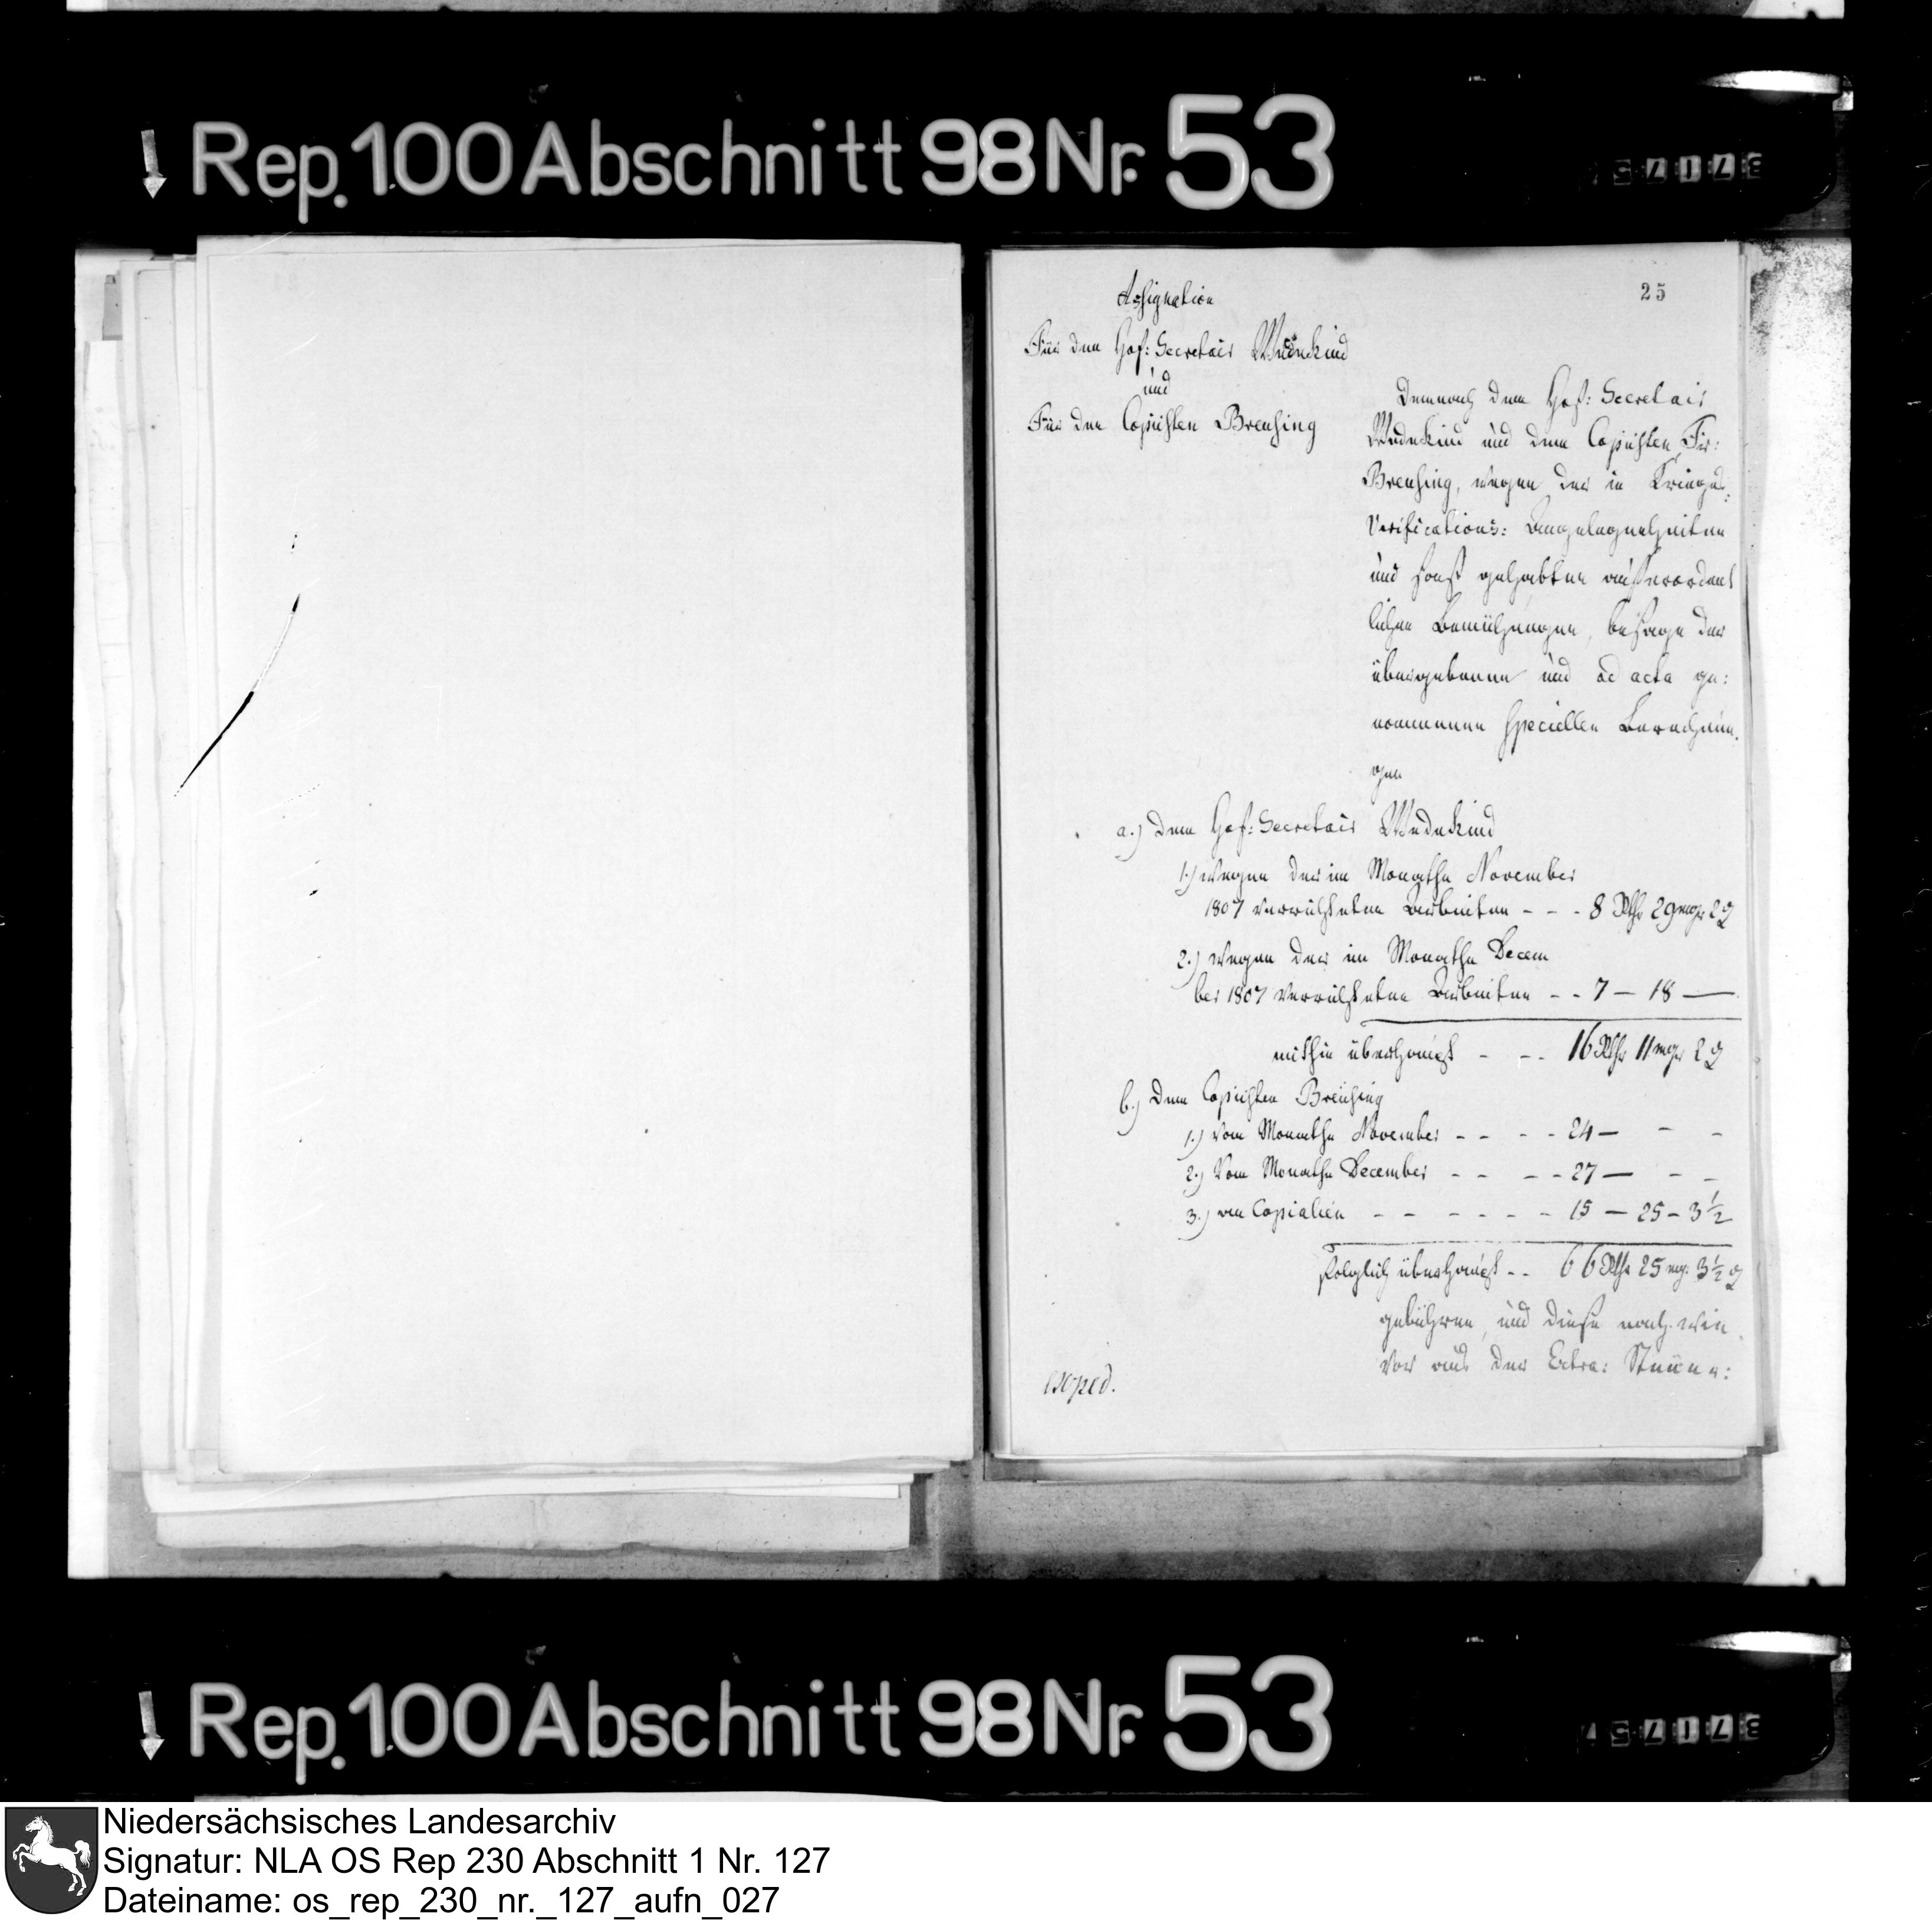 Rep. 100 Abschnitt 98 Nr. 53
25
Assignation
Für den Hof: Secretair Wedekind
und
Für den Copiisten Breusing
Demnach dem Hof: Secretair
Wedekind und dem Copiisten
Breusing, wegen der in Krieges
Verifications: Angelegenheiten
und sonst gehabten ausserordent
lichen Bemühungen, besage der
übergebenen und ad acta ge:
nommenen speciellen Berechnun
gen
a.) dem Hof: Secretair Wedekind
1.) wegen der im Monathe November
1807 verrichteten Arbeiten - - - 8 Rthr 29 mgr 2 d
2.) wegen der im Monathe Decem
ber 1807 verrichteten Arbeiten - - 7 — 18 —
mithin überhaupt - - - 16 Rthr 11 mgr 2 d
b.) dem Copiisten Breusing
1.) vom Monathe November - - - - 24 — - -
2.) Vom Monathe December - - - - 27 — - -
3.) an Copialien - - - - - - 15 — 25 - 3 ½
folglich überhaupt - - 66 Rthr 25 mgr. 3 ½ d
gebühren, und diese nach wie
vor aus der Extra: Steuer:
exped.
Rep. 100 Abschnitt 98 Nr. 53
Niedersächsisches Landesarchiv
Signatur: NLA OS Rep 230 Abschnitt 1 Nr. 127
Dateiname: os_rep_230_nr._127_aufn_027